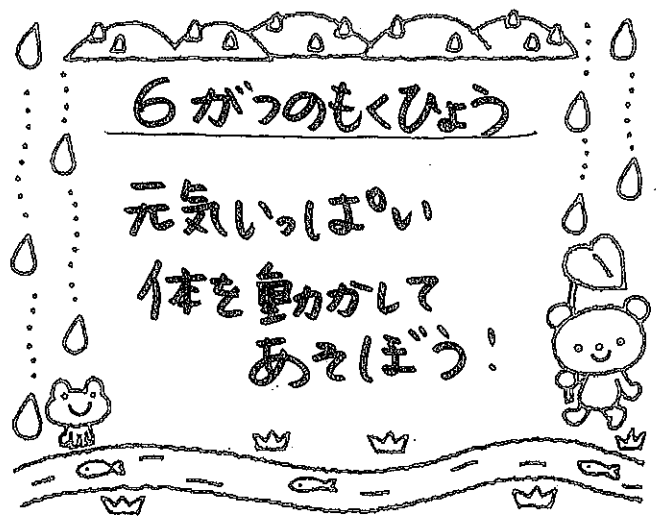 6がつのもくひょう
元気いっぱい
体を動かして
あそぼう!